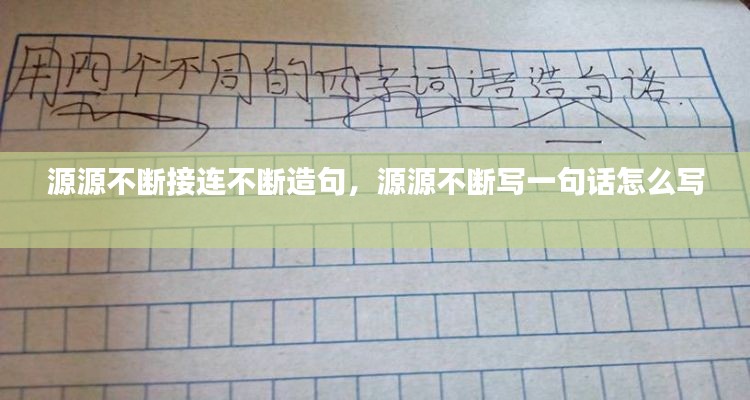 用四个不同的四字词语造句话.
源源不断接连不断造句，源源不断写一句话怎么写